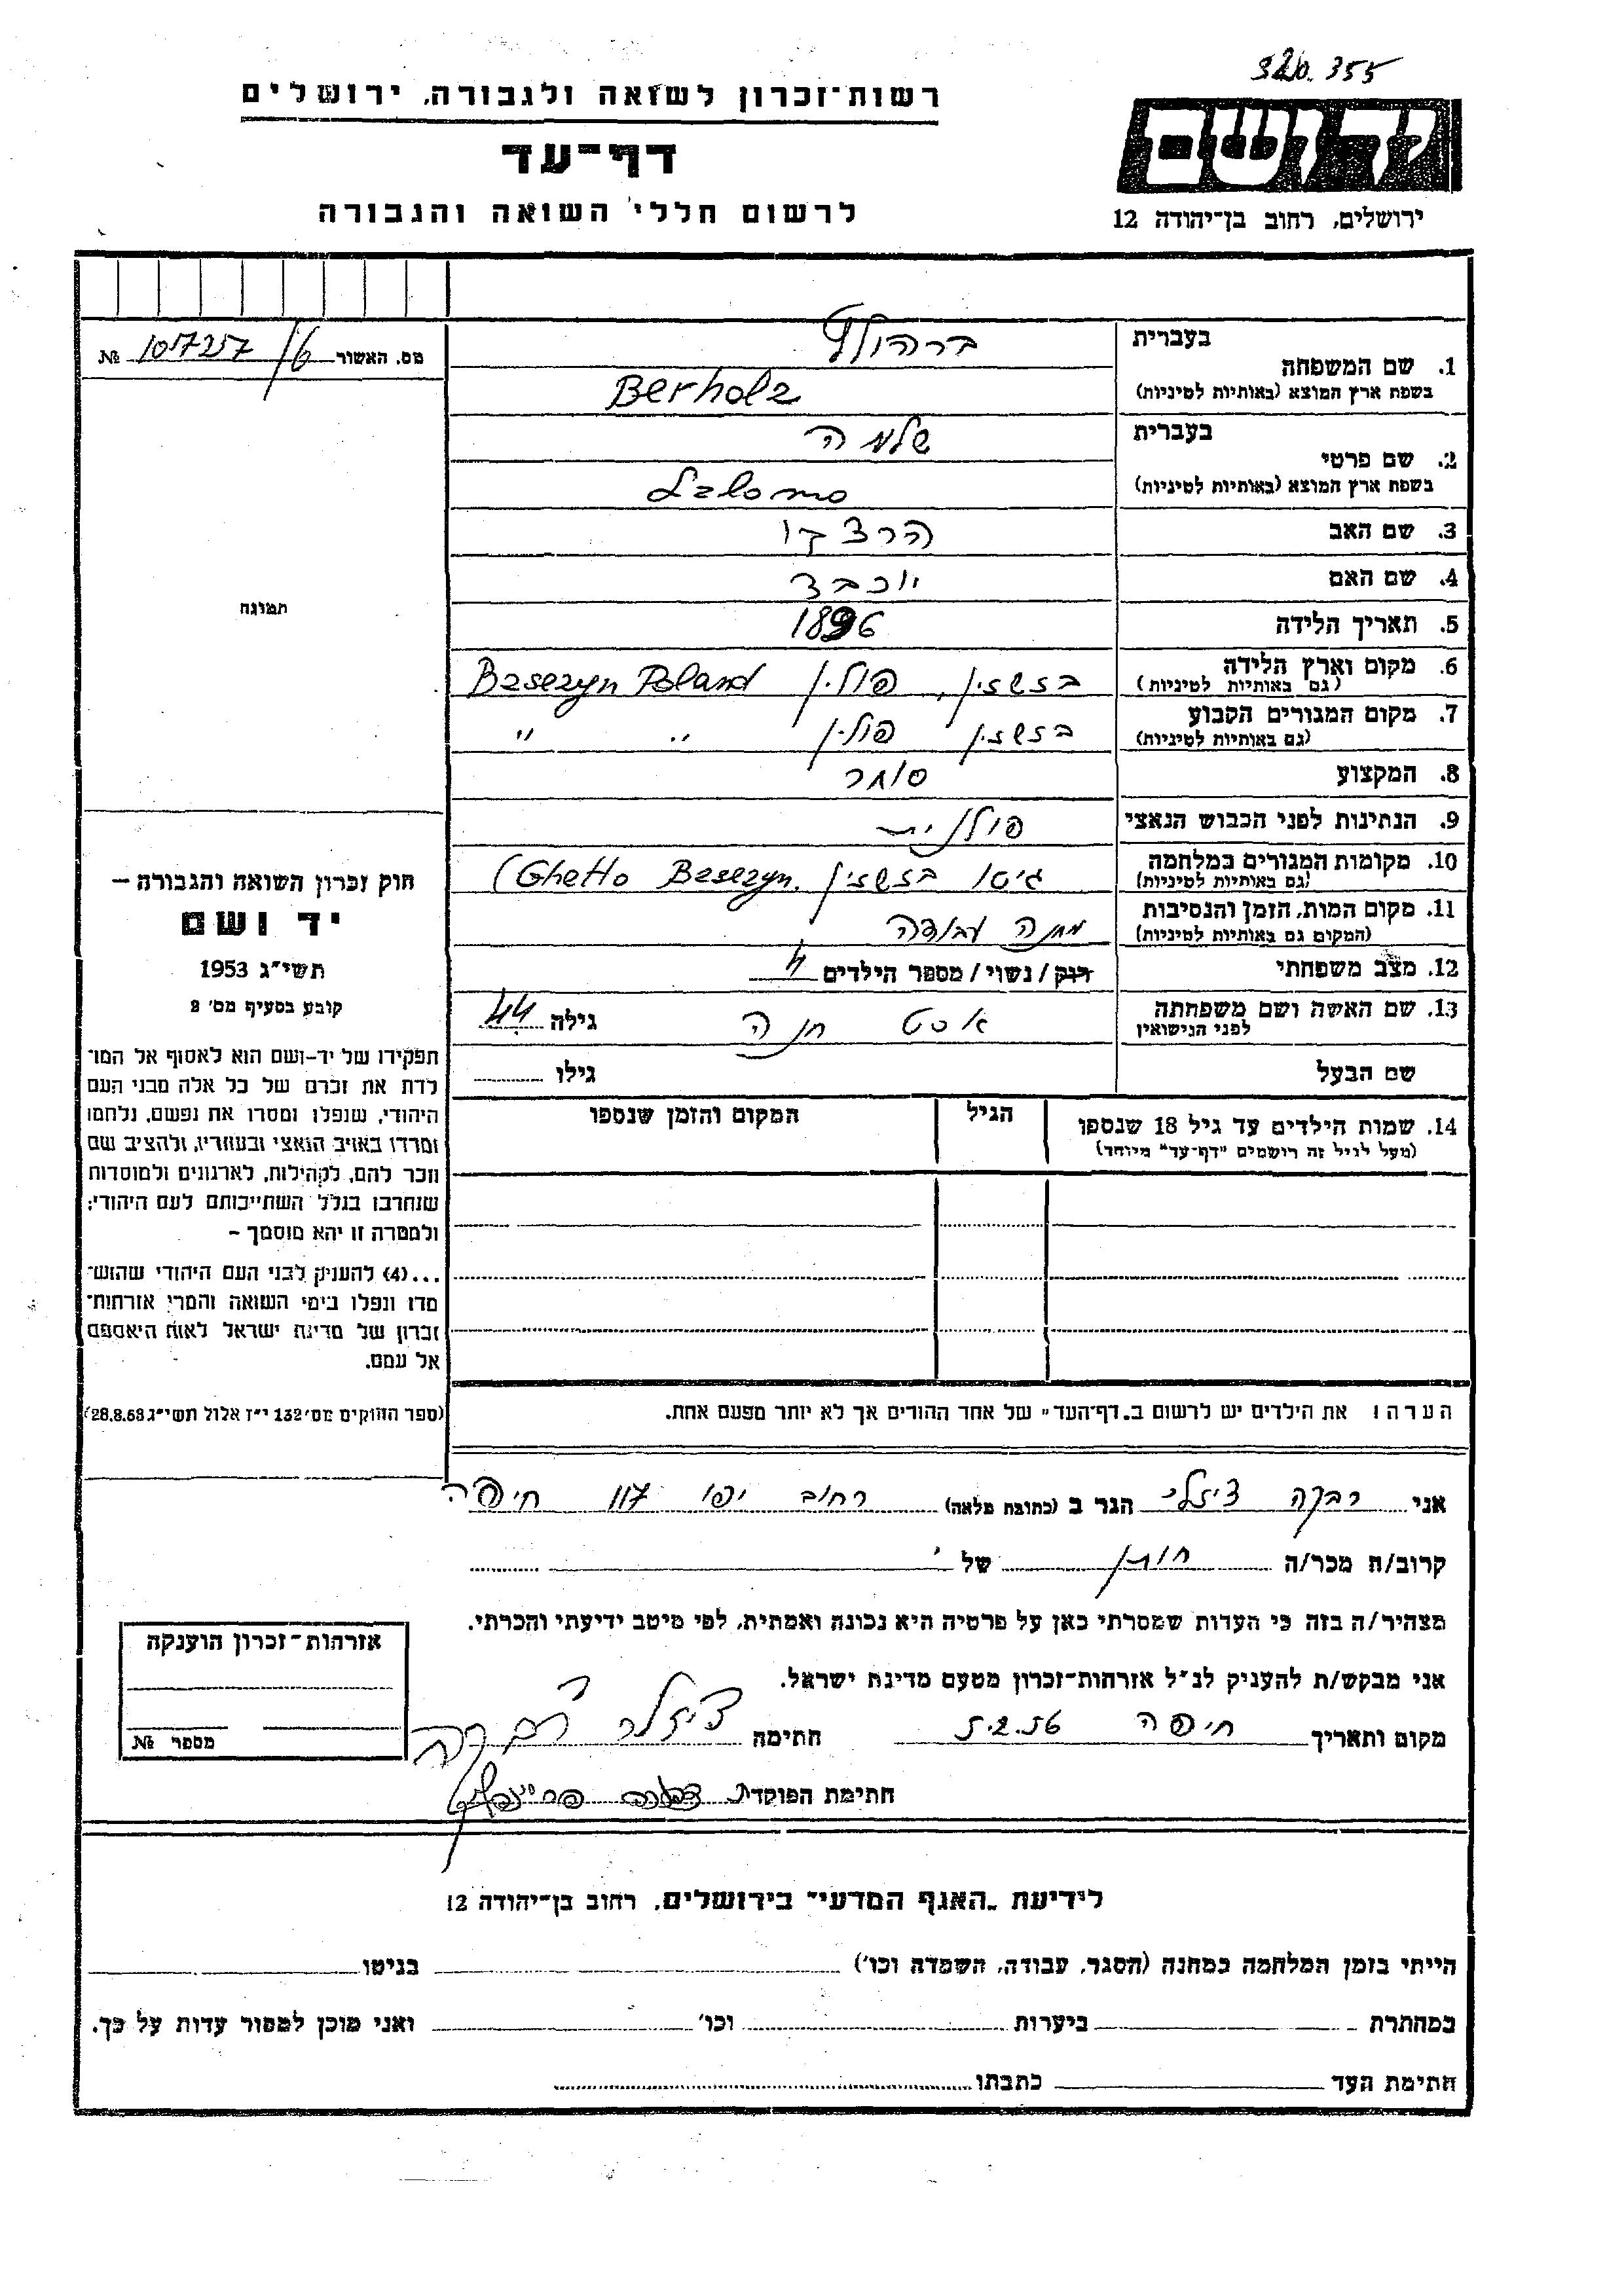 320.355
רשות־זכרון לשואה ולגבורה, ירושלים
ידושם
דף־עד
לרשום חללי השואה והגבורה
ירושלים, רחוב בן־יהודה 12
מס. האשור 107257 № ט/
1. שם המשפחה
בעברית ברהולץ
בשפת ארץ המוצא (באותיות לטיניות) Berholz
2. שם פרטי
בעברית שלמה
בשפת ארץ המוצא (באותיות לטיניות) Szlomo
3. שם האב הרצקו
4. שם האם יוכבד
5. תאריך הלידה 1896
6. מקום וארץ הלידה בזשזין, פולין Bzsezyn Poland
(גם באותיות לטיניות)
7. מקום המגורים הקבוע בזשזין פולין " "
(גם באותיות לטיניות)
8. המקצוע סוחר
9. הנתינות לפני הכבוש הנאצי פולנית
10. מקומות המגורים במלחמה גיטו בזשזין (Ghetto Bzsezyn.
(גם באותיות לטיניות)
11. מקום המות, הזמן והנסיבות מחנה עבודה
(המקום גם באותיות לטיניות)
12. מצב משפחתי רוק / נשוי / מספר הילדים 4
13. שם האשה ושם משפחתה חנה גילה 44
לפני הנישואין
שם הבעל גילו
14. שמות הילדים עד גיל 18 שנספו הגיל המקום והזמן שנספו
(מעל לגיל זה רושמים "דף־עד" מיוחד)
הערה: את הילדים יש לרשום ב„דף־העד" של אחד ההורים אך לא יותר מפעם אחת.
תמונה
חוק זכרון השואה והגבורה –
יד ושם
תשי"ג 1953
קובע בסעיף מס' 2
תפקידו של יד-ושם הוא לאסוף אל המו־
לדת את זכרם של כל אלה מבני העם
היהודי, שנפלו ומסרו את נפשם, נלחמו
ומרדו באויב הנאצי ובעוזריו, ולהציב שם
וזכר להם, לקהילות, לארגונים ולמוסדות
שנחרבו בגלל השתייכותם לעם היהודי;
ולמטרה זו יהא מוסמך –
...(4) להעניק לבני העם היהודי שהוש־
מדו ונפלו בימי השואה והמרי אזרחות־
זכרון של מדינת ישראל לאות היאספם
אל עמם.
(ספר החוקים מס' 132 י"ז אלול תשי"ג 28.8.53)
אני רבקה ציזלי הגר ב (כתובת מלאה) רחוב יפו 117 חיפה
קרוב/ה מכר/ה חותן של
מצהיר/ה בזה כי העדות שמסרתי כאן על פרטיה היא נכונה ואמתית, לפי מיטב ידיעתי והכרתי.
אני מבקש/ת להעניק לנ"ל אזרחות־זכרון מטעם מדינת ישראל.
מקום ותאריך חיפה 5.2.56 חתימה
חתימת הפוקדת
אזרחות־זכרון הוענקה
מספר №
לידיעת „האגף המדעי" בירושלים, רחוב בן־יהודה 12
הייתי בזמן המלחמה במחנה (הסגר, עבודה, השמדה וכו') בגיטו
במחתרת ביערות וכו' ואני מוכן למסור עדות על כך.
חתימת העד כתבתו